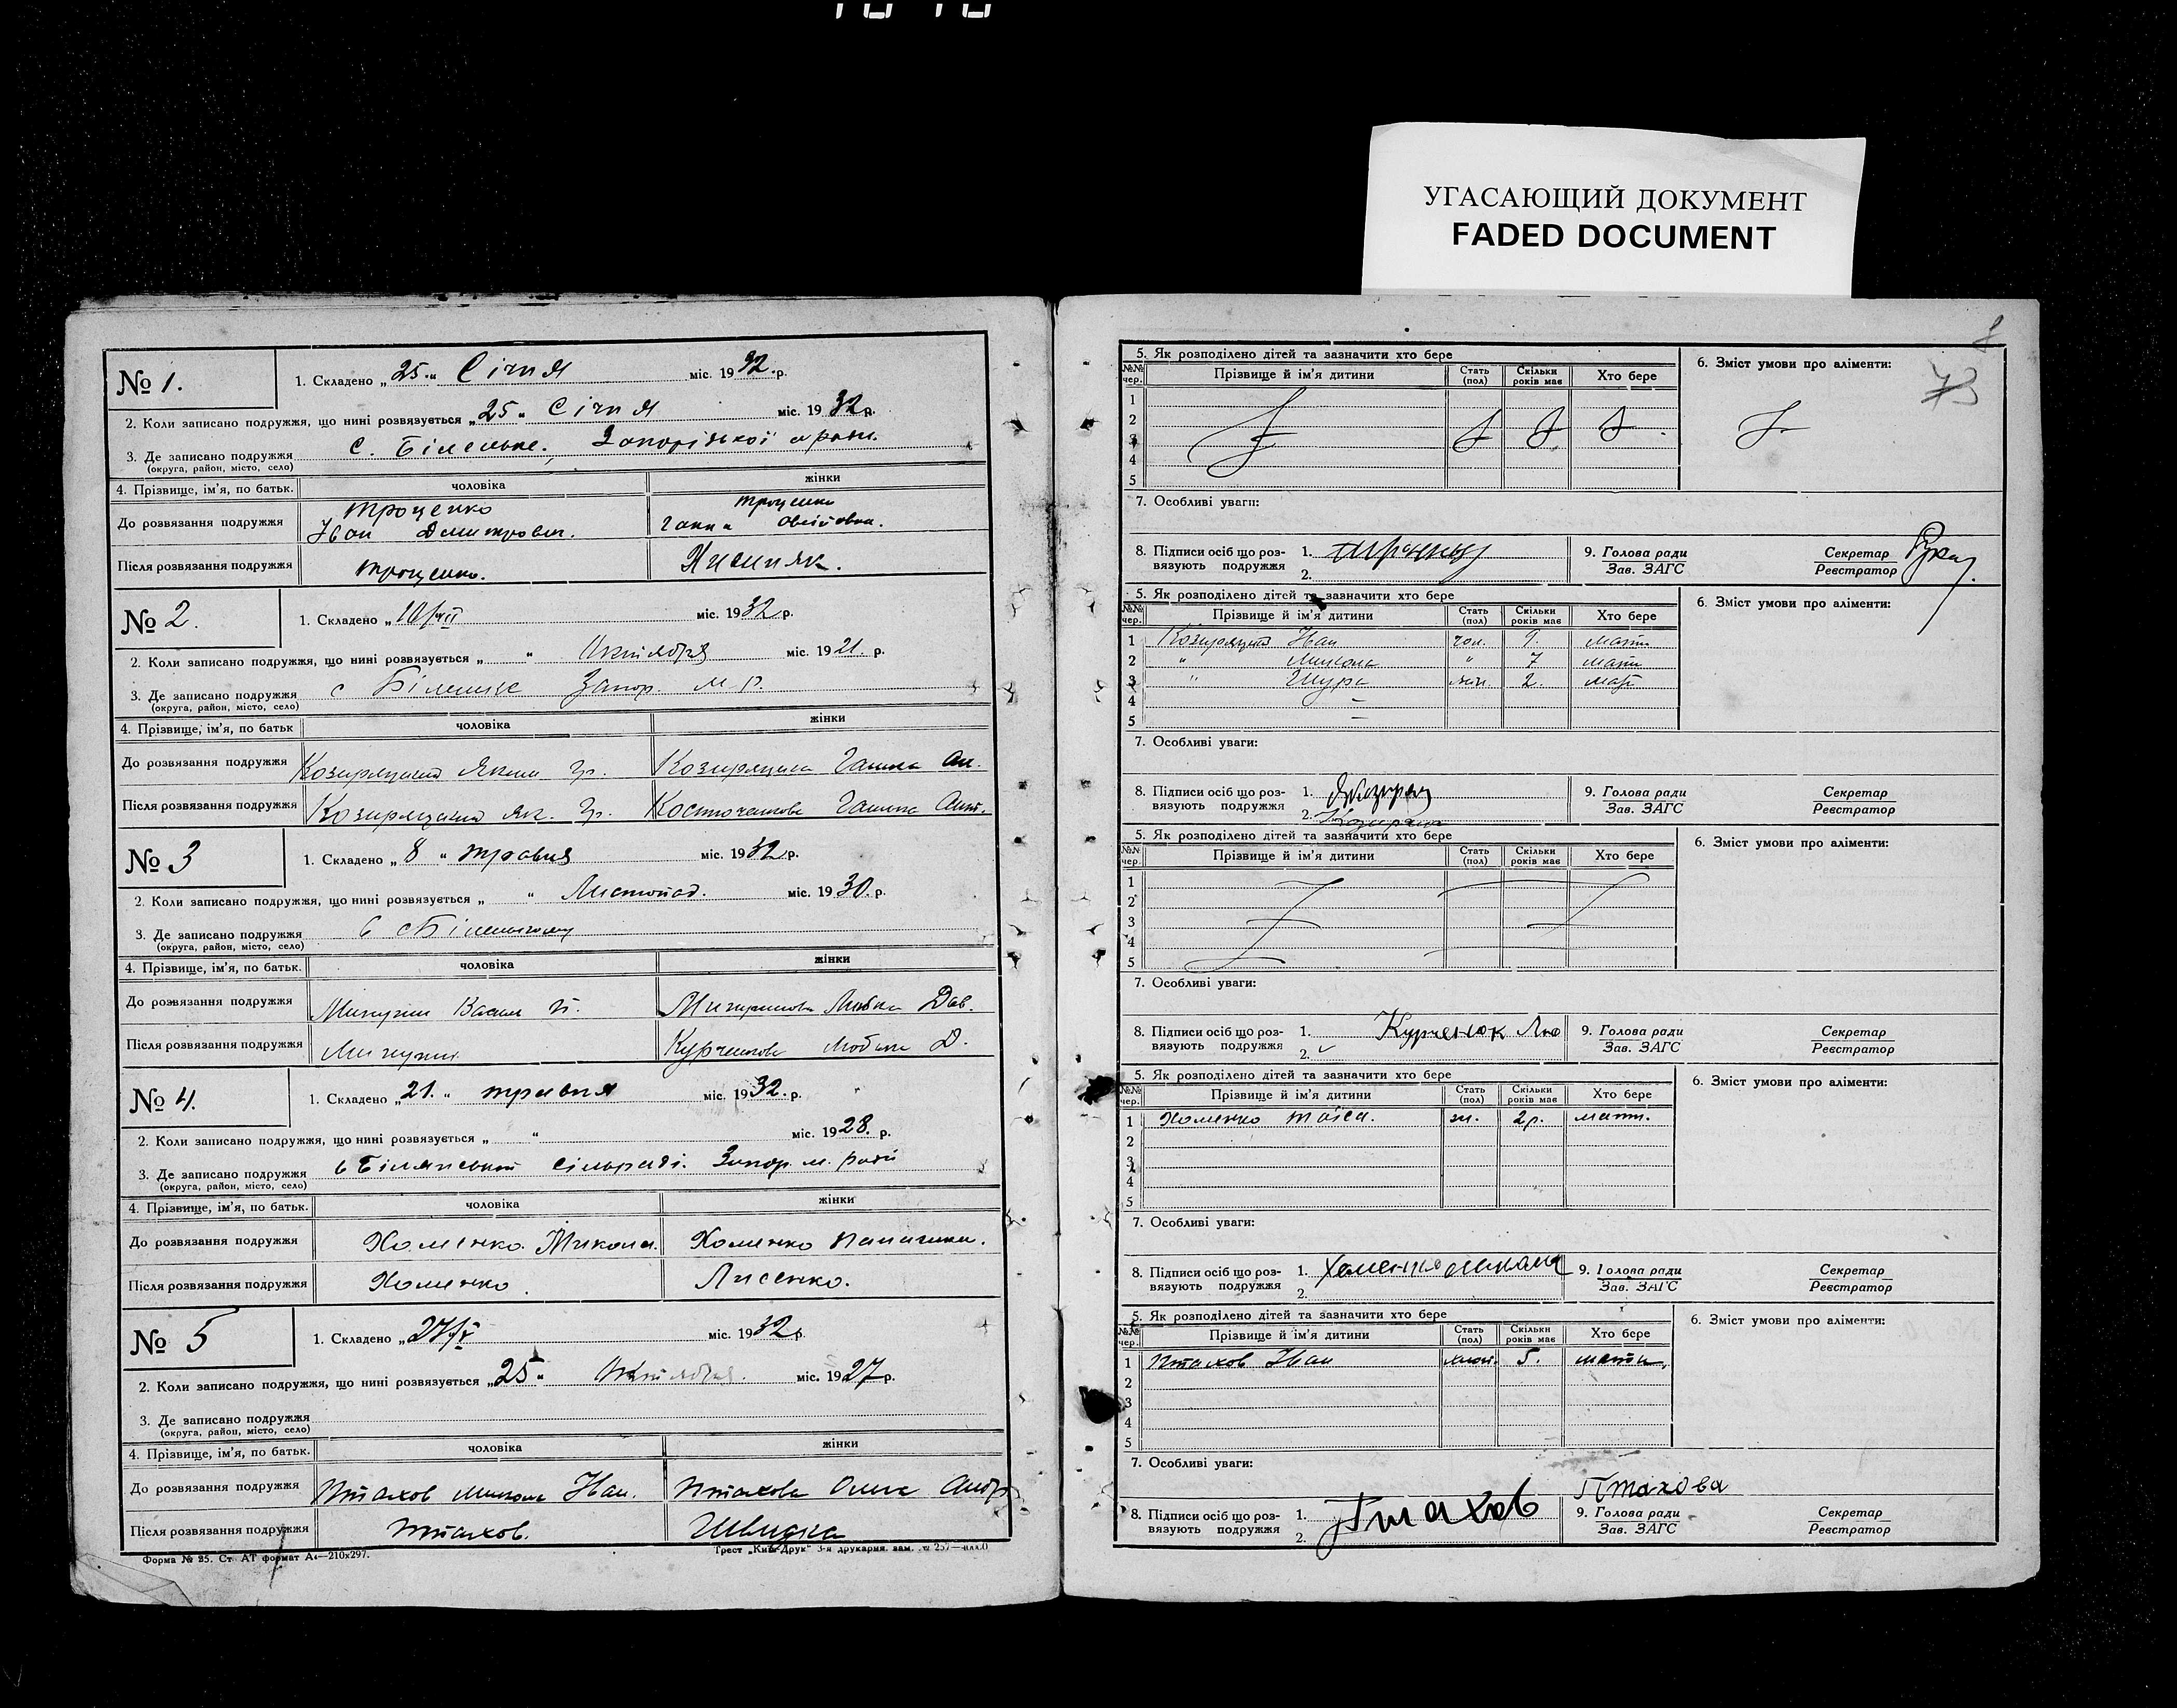 УГАСАЮЩИЙ ДОКУМЕНТ
FADED DOCUMENT
№ 1.
1. Складено „25.“ Січня міс. 1932.р.
2. Коли записано подружжя, що нині розвязується „25“ Січня міс. 1932р.
3. Де записано подружжя С. Біленьке, Запорізької
(округа, район, місто, село)
4. Прізвище, ім'я, по батьк. чоловіка жінки
До розвязання подружжя Троценко Іван Дмитрович. Троценко Ганна
Після розвязання подружжя Троценко.
№ 2.
1. Складено „10/VII міс. 1932р.
2. Коли записано подружжя, що нині розвязується „ “ міс. 1921. р.
3. Де записано подружжя с Біленьке Запор. м. р.
(округа, район, місто, село)
4. Прізвище, ім'я, по батьк чоловіка жінки
До розвязання подружжя Козирацький Яким Гр. Козирацька Ганна Ан.
Після розвязання подружжя Козирацький Як. Гр. Ганна Ант.
№ 3
1. Складено „8“ травня міс. 1932р.
2. Коли записано подружжя, що нині розвязується „ “ Листопад. міс. 1930. р.
3. Де записано подружжя в с Біленькому
(округа, район, місто, село)
4. Прізвище, ім'я, по батьк. чоловіка жінки
До розвязання подружжя Мичурин Дав.
Після розвязання подружжя Мичурин Д.
№ 4.
1. Складено „21.“ травня міс. 1932. р.
2. Коли записано подружжя, що нині розвязується „ “ міс. 1928. р.
3. Де записано подружжя в Білянській сільраді. Запор. м. ради
(округа, район, місто, село)
4. Прізвище, ім'я, по батьк. чоловіка жінки
До розвязання подружжя Хоменко Микола. Хоменко
Після розвязання подружжя Хоменко. Лисенко.
№ 5
1. Складено „27/V міс. 1932р.
2. Коли записано подружжя, що нині розвязується „25“ міс. 1927р.
3. Де записано подружжя
(округа, район, місто, село)
4. Прізвище, ім'я, по батьк. чоловіка жінки
До розвязання подружжя Птахов Микола Іван. Птахова Ольга Андр
Після розвязання подружжя Птахов. Швидка
Форма № 25. Ст. АТ формат А4—210x297.
Трест „Київ-Друк“ 3-я друкарня. зам. № 257—
73
5. Як розподілено дітей та зазначити хто бере
6. Зміст умови про аліменти:
№№ чер. Прізвище й ім'я дитини Стать (пол) Скільки років має Хто бере
1
2
3
4
5
7. Особливі уваги:
8. Підписи осіб що розвязують подружжя 1. 2.
9. Голова ради Зав. ЗАГС Секретар Реєстратор
5. Як розподілено дітей та зазначити хто бере
6. Зміст умови про аліменти:
№№ чер. Прізвище й ім'я дитини Стать (пол) Скільки років має Хто бере
1 Козирацький Іван чол. 9. мати
2 „ Микола „ 7 мати
3 „ Шура жін. 2. мати
4 –
5 –
7. Особливі уваги:
8. Підписи осіб що розвязують подружжя 1. 2.
9. Голова ради Зав. ЗАГС Секретар Реєстратор
5. Як розподілено дітей та зазначити хто бере
6. Зміст умови про аліменти:
№№ чер. Прізвище й ім'я дитини Стать (пол) Скільки років має Хто бере
1
2
3
4
5
7. Особливі уваги:
8. Підписи осіб що розвязують подружжя 1. Курченюк Лю 2.
9. Голова ради Зав. ЗАГС Секретар Реєстратор
5. Як розподілено дітей та зазначити хто бере
6. Зміст умови про аліменти:
№№ чер. Прізвище й ім'я дитини Стать (пол) Скільки років має Хто бере
1 Хоменко Таїса. ж. 2р. мати.
2
3
4
5
7. Особливі уваги:
8. Підписи осіб що розвязують подружжя 1. Хоменко Микола 2.
9. Голова ради Зав. ЗАГС Секретар Реєстратор
5. Як розподілено дітей та зазначити хто бере
6. Зміст умови про аліменти:
№№ чер. Прізвище й ім'я дитини Стать (пол) Скільки років має Хто бере
1 Птахов Іван 5. мати
2
3
4
5
7. Особливі уваги:
Птахова
8. Підписи осіб що розвязують подружжя 1. Птахов 2.
9. Голова ради Зав. ЗАГС Секретар Реєстратор